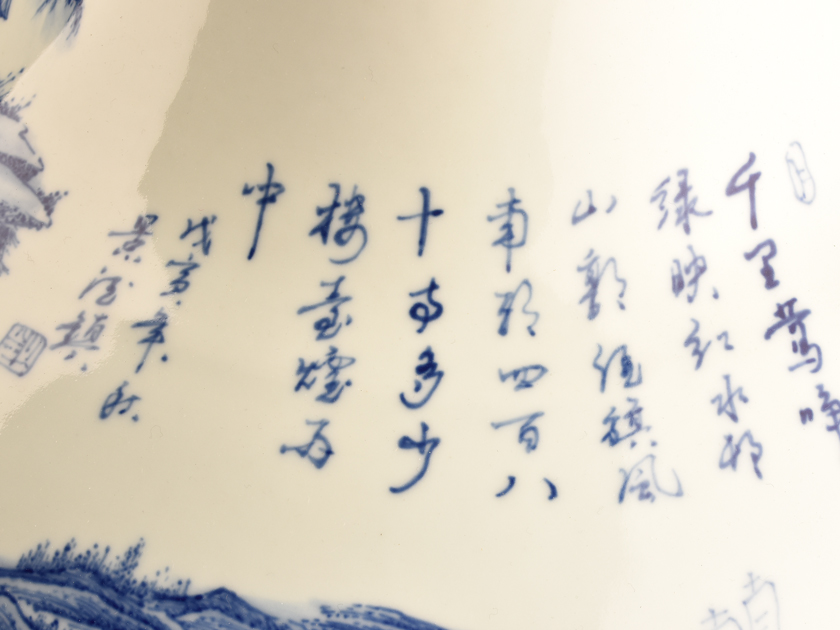 千里鶯啼
绿映红水邨
山郭酒旗風
南朝四百八
十寺多少
楼臺煙雨
中
戊寅年秋
景德镇